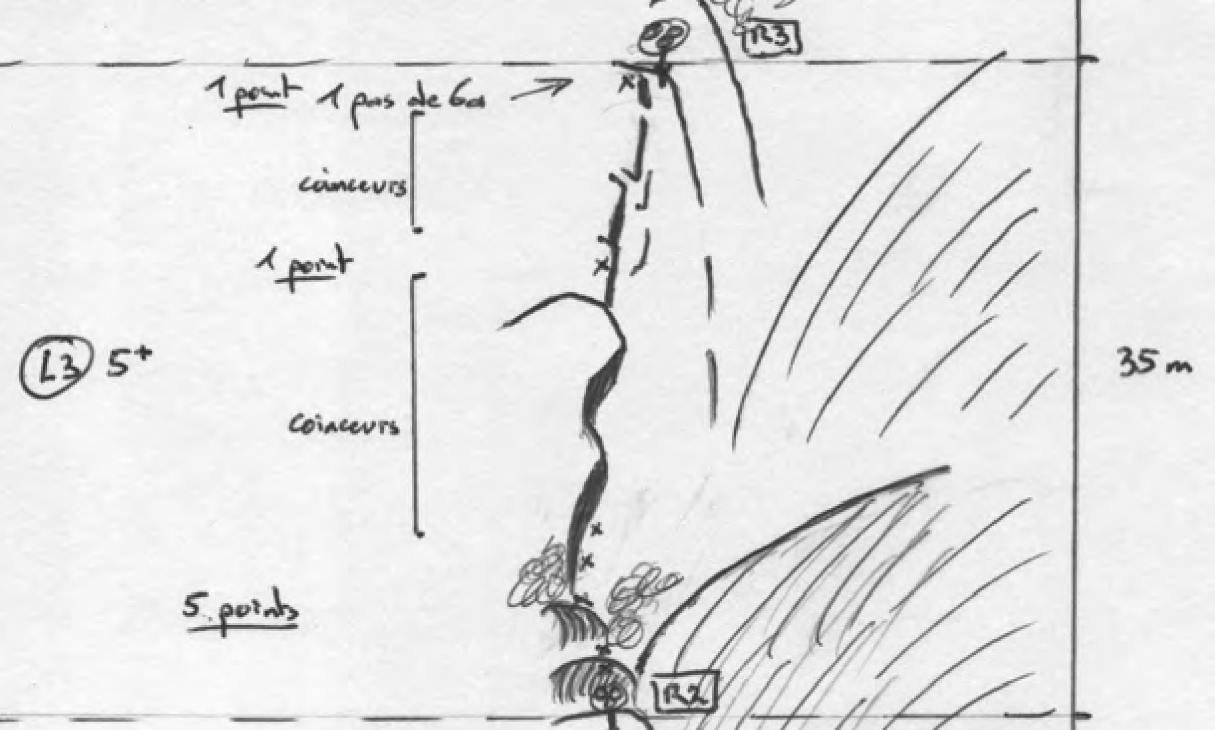 R3
1 point 1 pas de 6a
coinceurs
1 point
L3 5+
35 m
coinceurs
5 points
R2